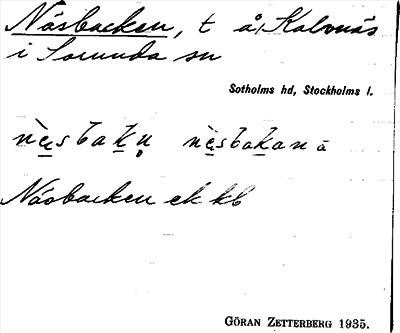 Näsbacken, t å Kalvnäs
i Sorunda sn
Sotholms hd, Stockholms l.
Näsbacken ek kb
GÖRAN ZETTERBERG 1935.